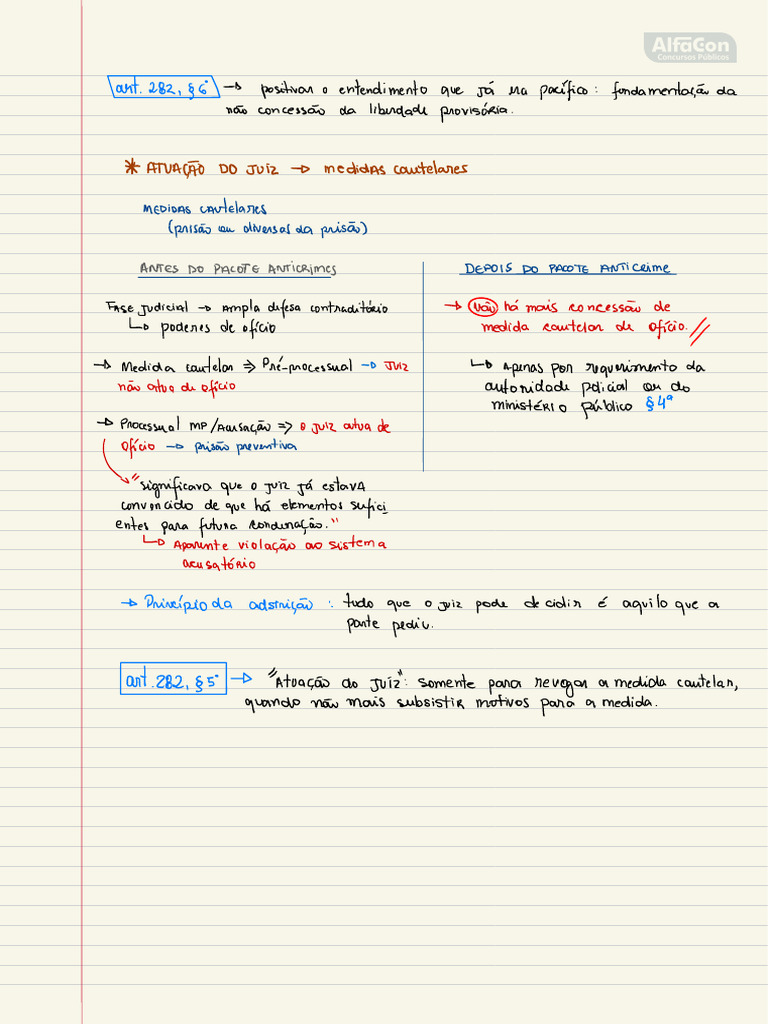 AlfaCon
Concursos Públicos
art. 282, § 6° → positivar o entendimento que já era pacífico: fundamentação da
não concessão da liberdade provisória.
* ATUAÇÃO DO JUIZ → medidas cautelares
MEDIDAS CAUTELARES
(prisão ou diversas da prisão)
ANTES DO PACOTE ANTICRIMES
Fase Judicial → Ampla defesa contraditório
↳ poderes de ofício
→ Medida cautelar ⇒ Pré-processual → Juiz
não atua de ofício
→ Processual MP/Acusação => o juiz atua de
ofício → prisão preventiva
"significava que o juiz já estava
convencido de que há elementos sufici
entes para futura condenação."
↳ Aparente violação ao sistema
acusatório
DEPOIS DO PACOTE ANTICRIME
→ Não há mais concessão de
medida cautelar de ofício.//
↳ Apenas por requerimento da
autoridade policial ou do
ministério público § 4º
→ Princípio da adstrição : tudo que o juiz pode decidir é aquilo que a
parte pediu.
art. 282, § 5° → "Atuação do Juíz": somente para revogar a medida cautelar,
quando não mais subsistir motivos para a medida.